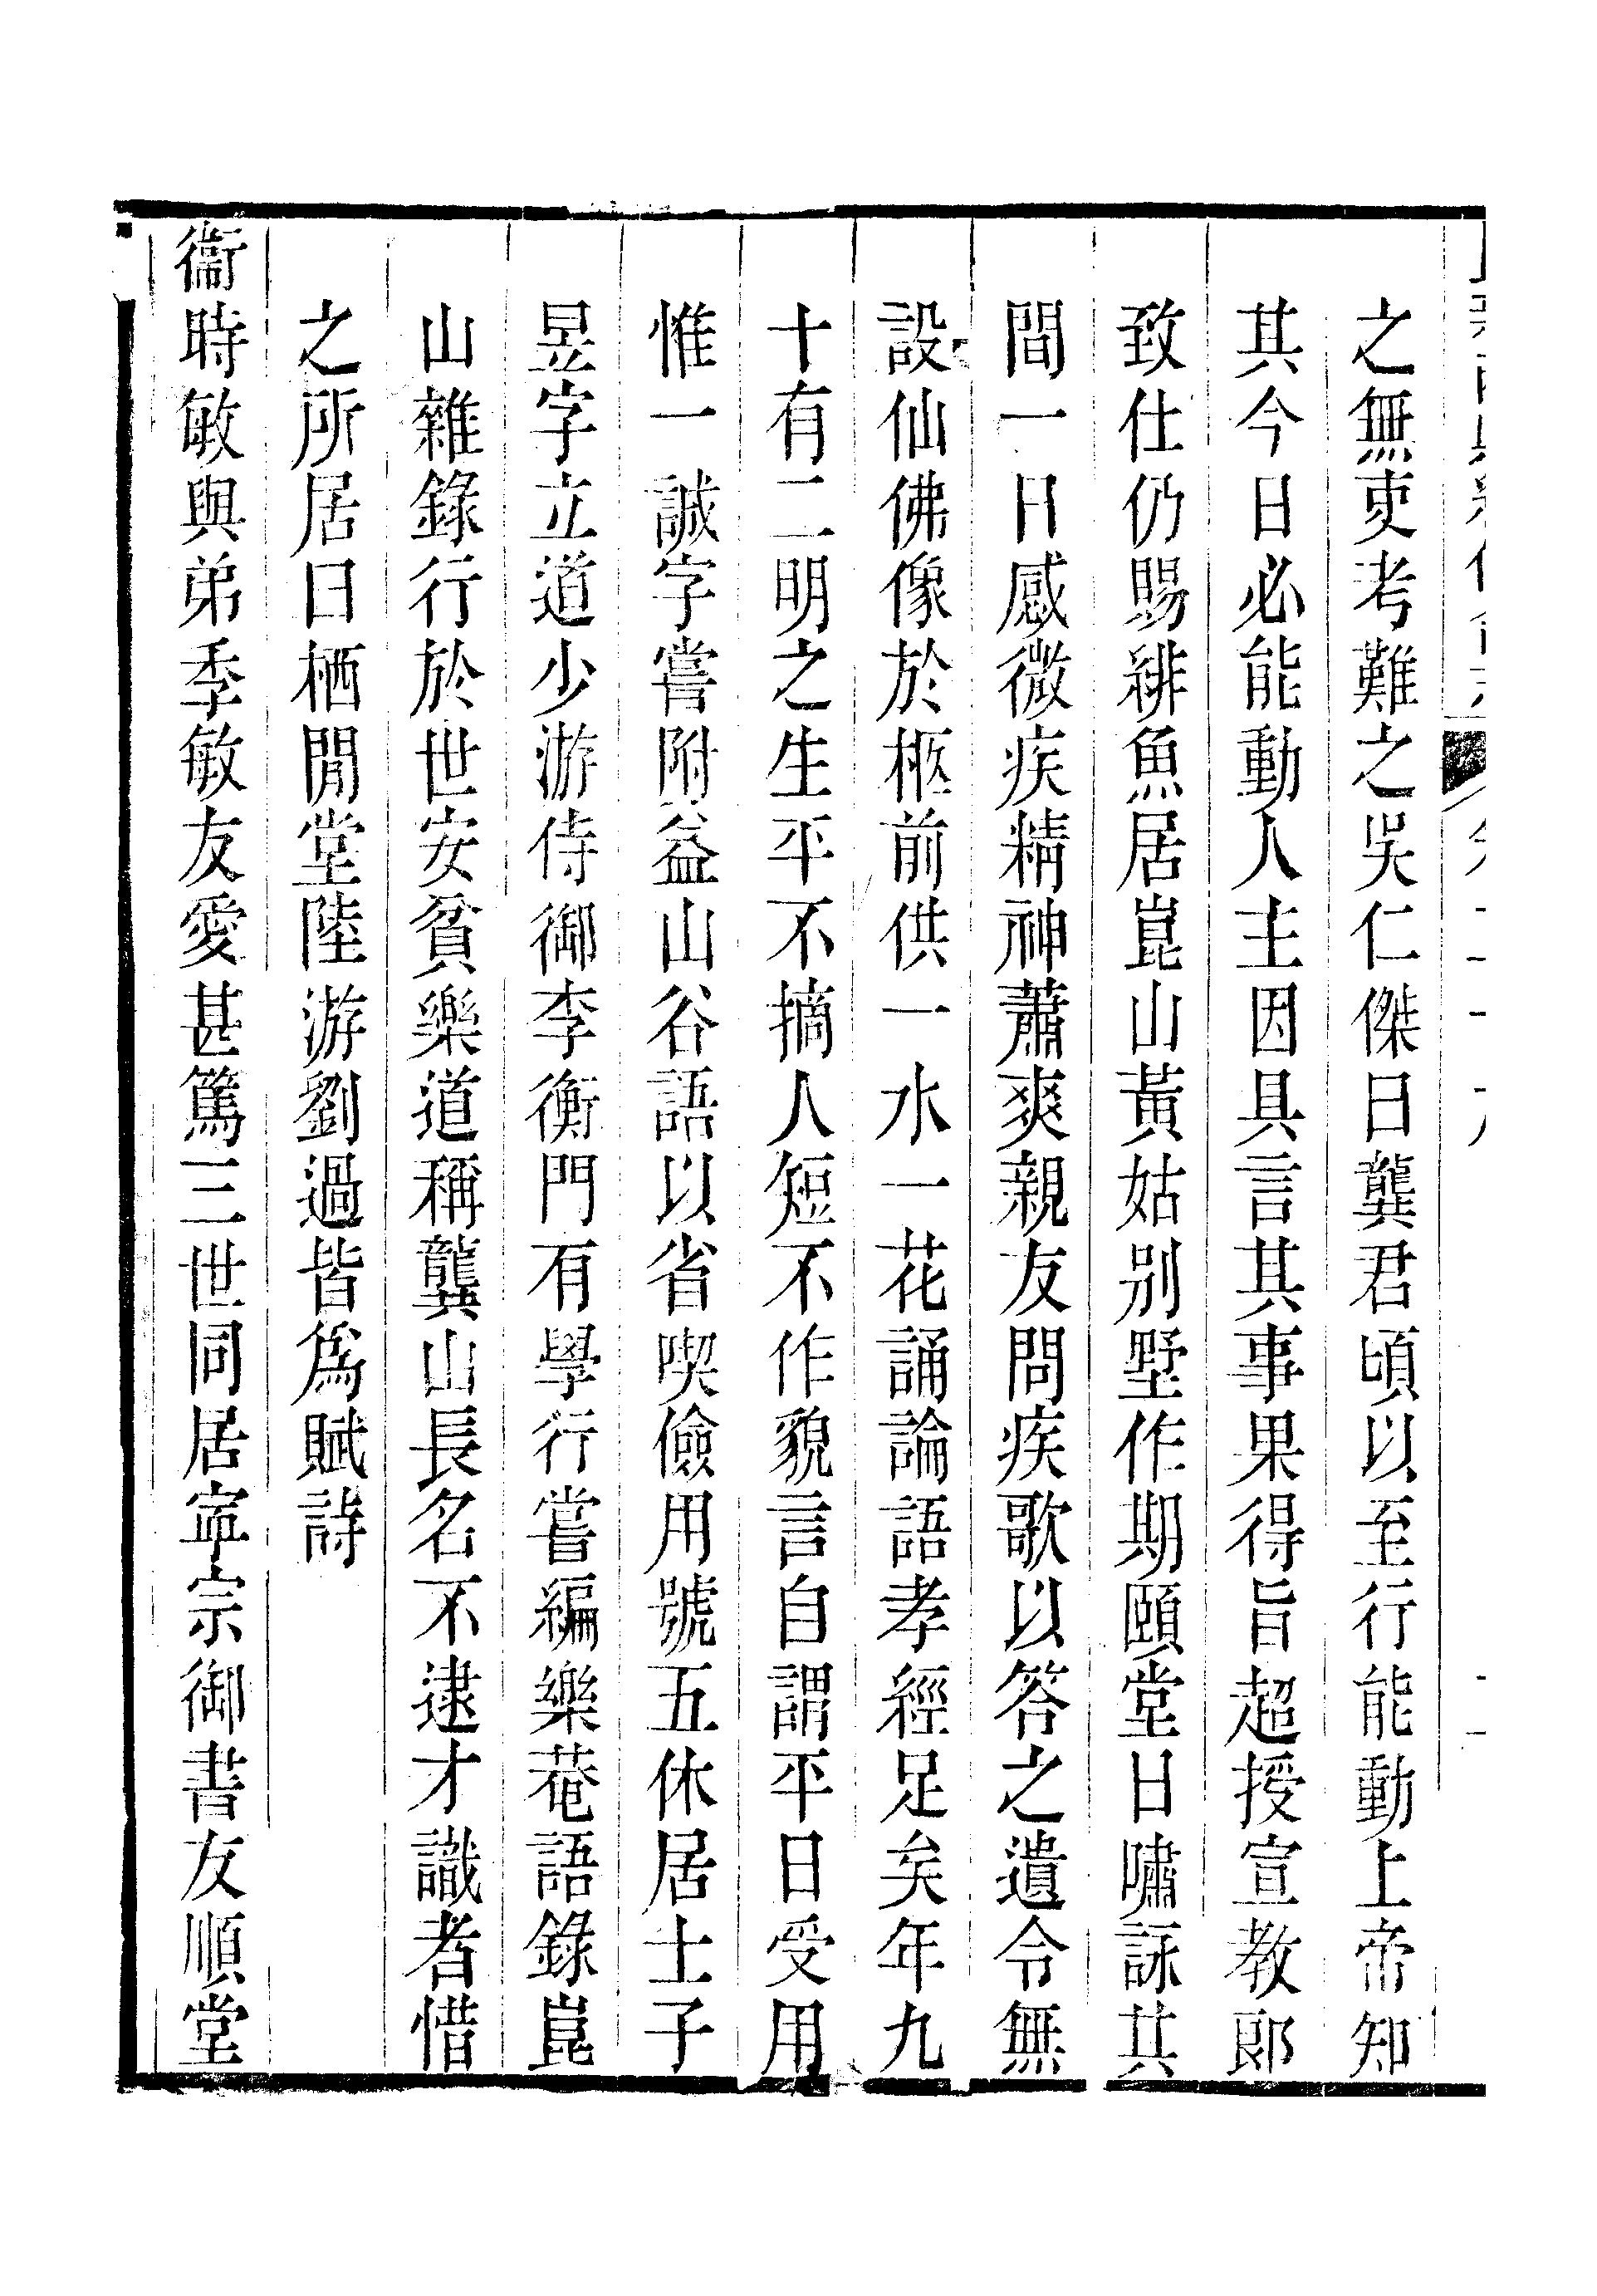 之無吏考難之吳仁傑曰龔君頃以至行能動上帝知
其今日必能動人主因具言其事果得旨超授宣教郎
致仕仍賜緋魚居崑山黃姑別墅作期頤堂日嘯詠其
間一日感微疾精神蕭爽親友問疾歌以答之遺令無
設仙佛像於柩前供一水一花誦論語孝經足矣年九
十有二明之生平不摘人短不作貌言自謂平日受用
惟一誠字嘗附益山谷語以省喫儉用號五休居士子
昱字立道少游侍御李衡門有學行嘗編樂菴語錄崑
山雜錄行於世安貧樂道稱龔山長名不逮才識者惜
之所居曰栖閒堂陸游劉過皆爲賦詩
衞時敏與弟季敏友愛甚篤三世同居寕宗御書友順堂